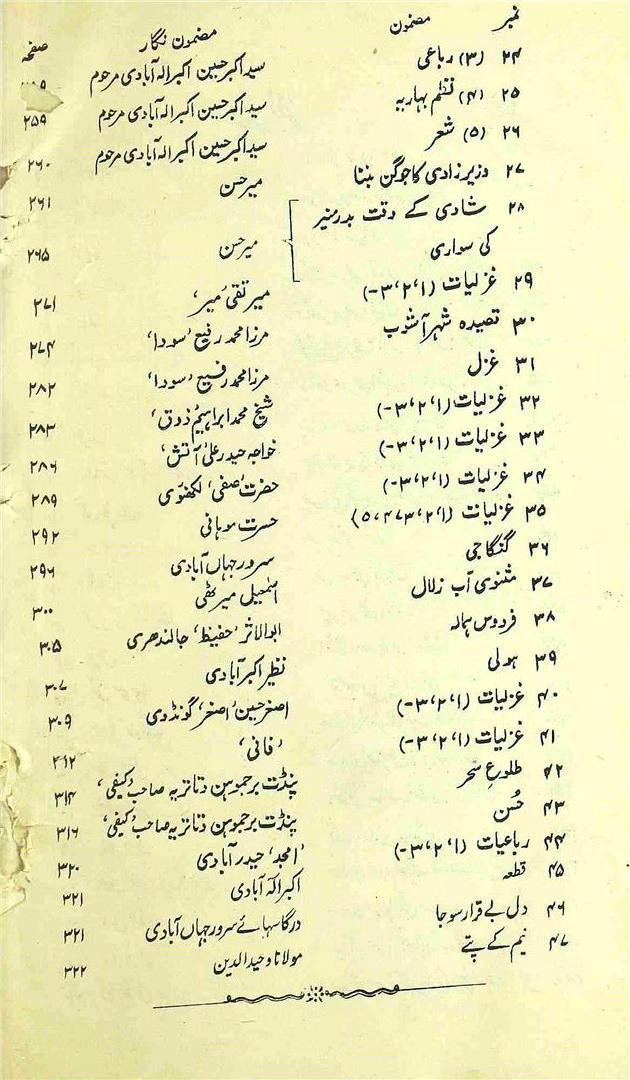 نمبر مضمون مضمون نگار صفحہ
۲۴ (۳) رباعی سید اکبر حسین اکبر الہ آبادی مرحوم
۲۵ (۴) نظم بہاریہ سید اکبر حسین اکبر الہ آبادی مرحوم ۲۵۹
۲۶ (۵) شعر سید اکبر حسین اکبر الہ آبادی مرحوم ۲۶۰
۲۷ وزیر زادی کا جوگن بننا میر حسن ۲۶۱
۲۸ شادی کے وقت بدر منیر
کی سواری میر حسن ۲۶۵
۲۹ غزلیات (۱، ۲، ۳-) میر تقی ’میر‘ ۲۷۱
۳۰ قصیدہ شہر آشوب مرزا محمد رفیع ’سودا‘ ۲۷۴
۳۱ غزل مرزا محمد رفیع ’سودا‘ ۲۸۲
۳۲ غزلیات (۱، ۲، ۳-) شیخ محمد ابراہیم ’ذوق‘ ۲۸۳
۳۳ غزلیات (۱، ۲، ۳-) خواجہ حیدر علی ’آتش‘ ۲۸۶
۳۴ غزلیات (۱، ۲، ۳-) حضرت ’صفی‘ لکھنوی ۲۸۹
۳۵ غزلیات (۱، ۲، ۳، ۴، ۵) حسرت موہانی ۲۹۲
۳۶ گنگا جی سرور جہاں آبادی ۲۹۶
۳۷ مثنوی آب زلال اسمٰعیل میرٹھی ۳۰۰
۳۸ فردوس ہمالہ ابوالاثر ’حفیظ‘ جالندھری ۳۰۵
۳۹ ہولی نظیر اکبر آبادی ۳۰۷
۴۰ غزلیات (۱، ۲، ۳-) اصغر حسین ’اصغر‘ گونڈوی ۳۰۹
۴۱ غزلیات (۱، ۲، ۳-) ’فانی‘ ۴۱۲
۴۲ طلوعِ سحر پنڈت برجموہن دتاتریہ صاحب ’کیفی‘ ۳۱۴
۴۳ حُسن پنڈت برجموہن دتاتریہ صاحب ’کیفی‘ ۳۱۶
۴۴ رباعیات (۱، ۲، ۳-) ’امجد‘ حیدر آبادی ۳۲۰
۴۵ قطعہ اکبر الہٰ آبادی ۳۲۱
۴۶ دل بے قرار سو جا درگا سہائے سرور جہاں آبادی ۳۲۱
۴۷ نیم کے پتے مولانا وحید الدین ۳۲۲